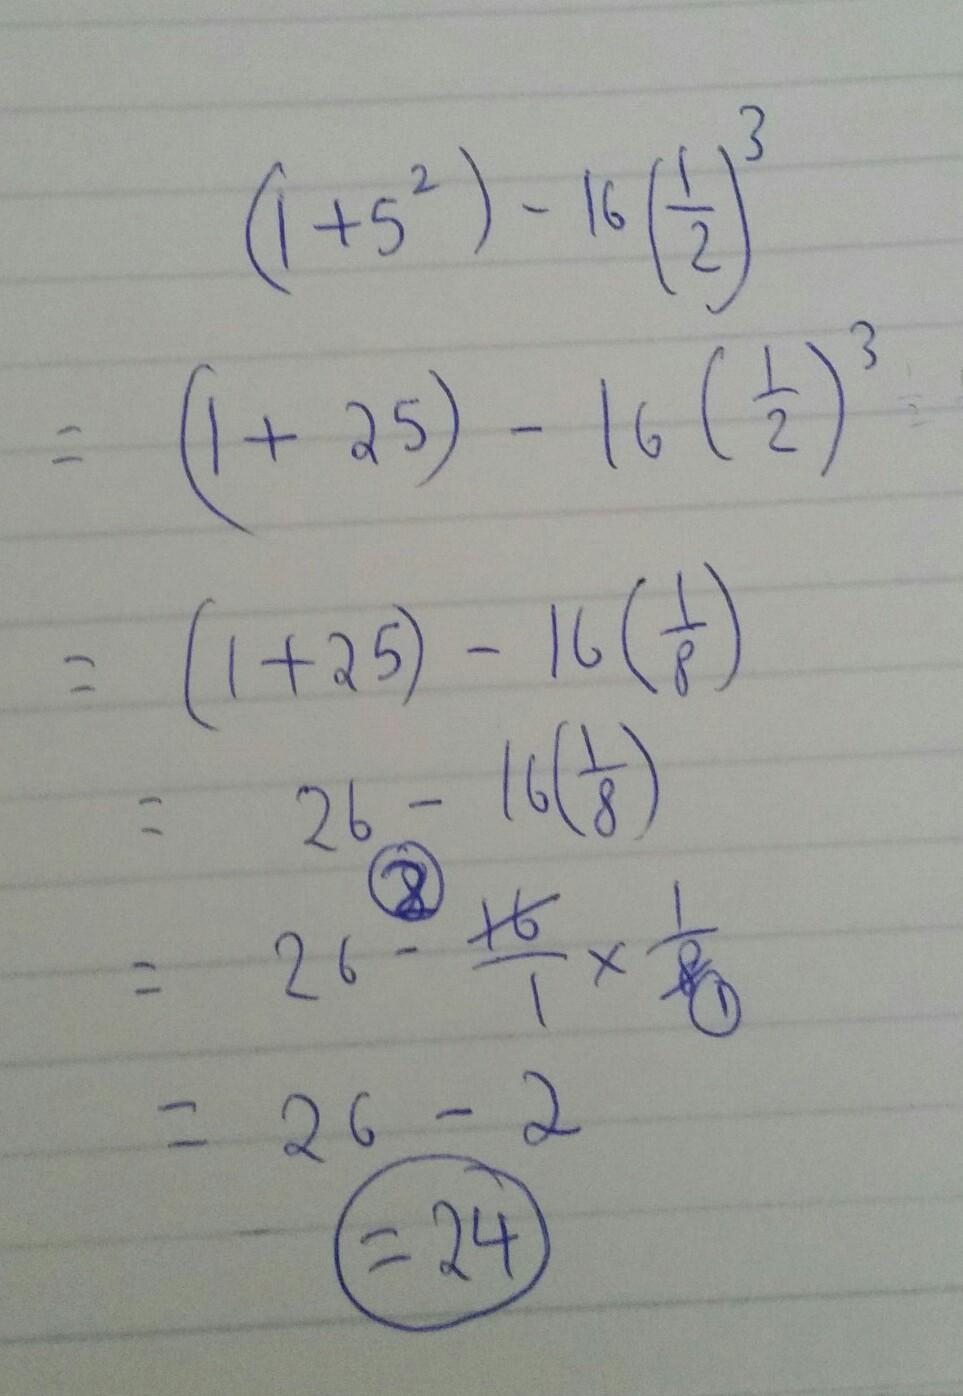 (1+5²) - 16(1/2)³
= (1+ 25) - 16 (1/2)³ =
= (1+25) - 16(1/8)
= 26 - 16(1/8)
2
= 26 - 16/1 × 1/8 1
= 26 - 2
= 24